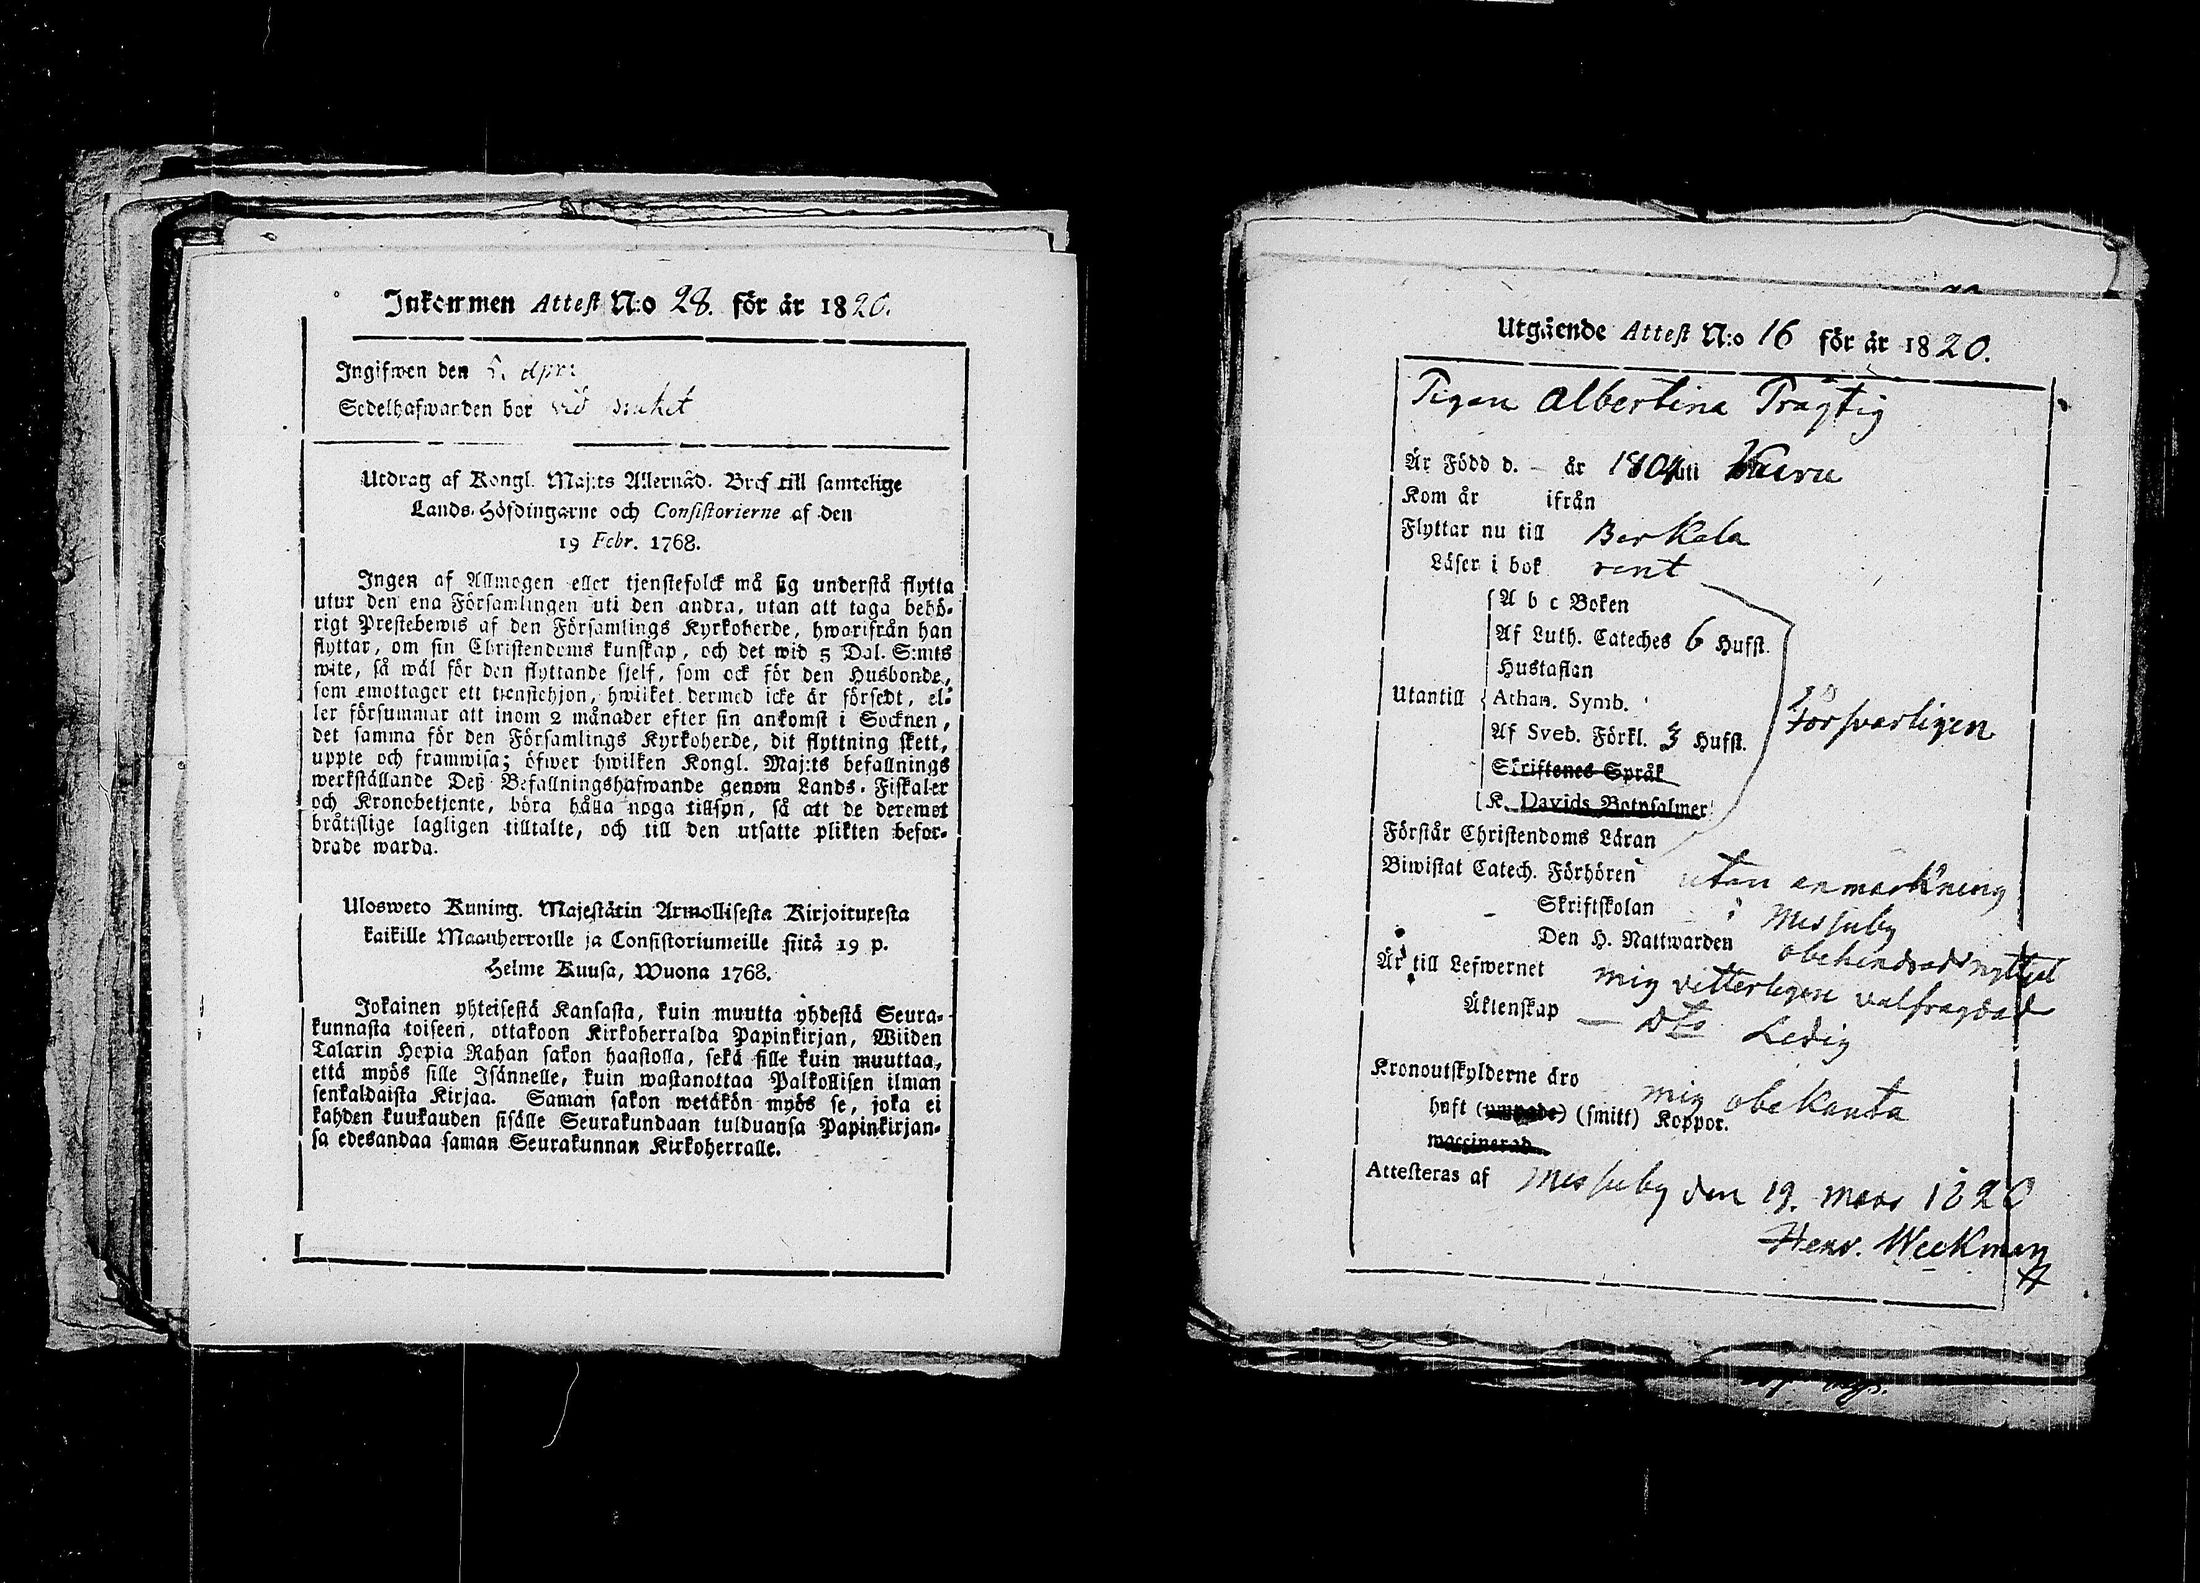 Inkommen Attest N:o 28. för år 1820.
Ingifwen den 5. Apr:
Sedelhafwanden bor vid bruket
Utdrag af Kongl. Maj:ts Allernåd. Bref till samtelige
Lands-Höfdingarne och Consistorierne af den
19 Febr. 1768.
Ingen af Allmogen eller tjenstefolck må sig understå flytta
utur den ena Församlingen uti den andra, utan att taga behö-
rigt Prestebewis af den Församlings Kyrkoherde, hwarifrån han
flyttar, om sin Christendoms kunskap, och det wid 5 Dal. S:mts
wite, så wäl för den flyttande sjelf, som ock för den Husbonde,
som emottager ett tjenstehjon, hwilket dermed icke är försedt, el-
ler försummar att inom 2 månader efter sin ankomst i Socknen,
det samma för den Församlings Kyrkoherde, dit flyttning skett,
uppte och framwisa; öfwer hwilken Kongl. Maj:ts befallnings
werkställande Deß Befallningshafwande genom Lands-Fiskaler
och Kronobetjente, böra hålla noga tillsyn, så att de deremot
bråttslige lagligen tilltalte, och till den utsatte plikten befor-
drade warda.
Ulosweto Kuning. Majestätin Armollisesta Kirjoituxesta
kaikille Maanherroille ja Consistoriumeille siitä 19 p.
Helme Kuusa, Wuona 1768.
Jokainen yhteisestä Kansasta, kuin muutta yhdestä Seura-
kunnasta toiseen, ottakoon Kirkoherralda Papinkirjan, Wiiden
Talarin Hopia Rahan sakon haastolla, sekä sille kuin muuttaa,
että myös sille Isännelle, kuin wastanottaa Palkollisen ilman
senkaldaista Kirjaa. Saman sakon wetäkön myös se, joka ei
kahden kuukauden sisälle Seurakundaan tulduansa Papinkirjan-
sa edesandaa saman Seurakunnan Kirkoherralle.
Utgående Attest N:o 16 för år 1820.
Pigan Albertina Prägtig
Är Född d. — år 1804 uti Kuru
Kom år ifrån
Flyttar nu till Berkala
Läser i bok rent
A b c Boken
Af Luth. Cateches 6 Hufst.
Hustaflan
Utantill Athan. Symb.
Af Sveb. Förkl. 3 Hufst.
Skriftenes Språk
K. Davids Botpsalmer
Försvarligen
Förstår Christendoms Läran
Biwistat Catech. Förhören utan anmärkning
Skriftskolan i Messuby
Den H. Nattwarden obehindrad nyttjat
Är till Lefwernet mig vitterligen välfrägdad
Äktenskap — Dto Ledig
Kronoutskylderne äro mig obekanta
haft (ympade) (smitt) Koppor.
vaccinerad
Attesteras af Messuby den 19. Mars 1820
Henr. Weckman